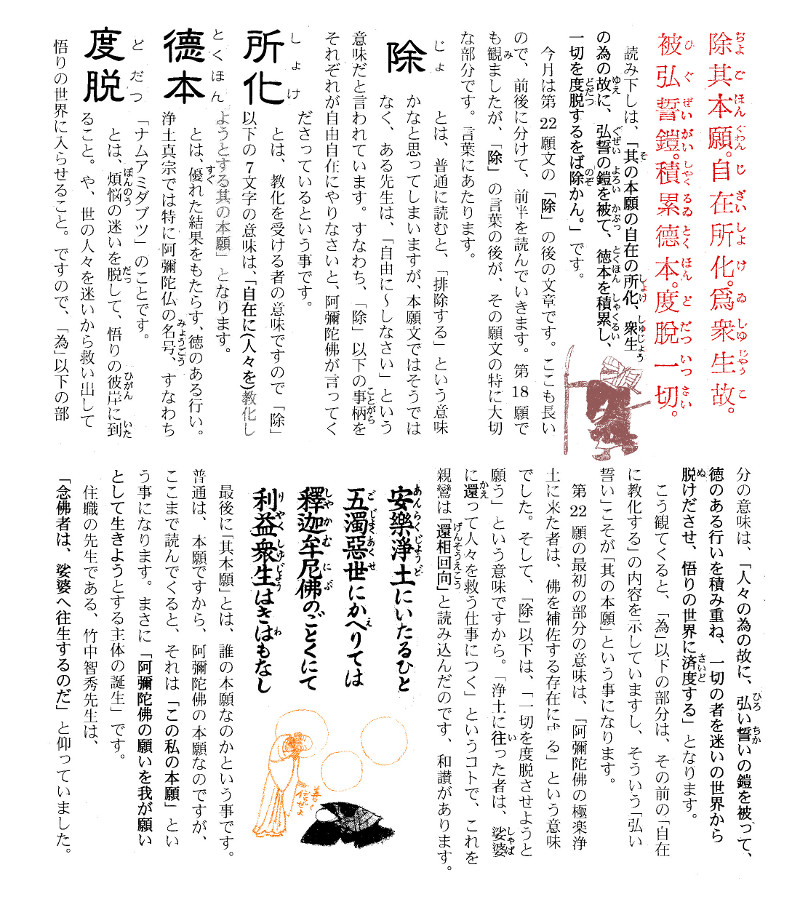 除其本願。自在所化。爲衆生故。
被弘誓鎧。積累德本。度脱一切。
読み下しは、「其の本願の自在の所化、衆生
の為の故に、弘誓の鎧を被て、徳本を積累し、
一切を度脱するをば除かん。」です。
今月は第22願文の「除」の後の文章です。ここも長い
ので、前後に分けて、前半を読んでいきます。第18願で
も観ましたが、「除」の言葉の後が、その願文の特に大切
な部分です。言葉にあたります。
除
とは、普通に読むと、「排除する」という意味
かなと思ってしまいますが、本願文ではそうでは
なく、ある先生は、「自由に～しなさい」という
意味だと言われています。すなわち、「除」以下の事柄を
それぞれが自由自在にやりなさいと、阿彌陀佛が言ってく
ださっているという事です。
所化
とは、教化を受ける者の意味ですので「除」
以下の7文字の意味は、「自在に(人々を)教化し
ようとする其の本願」となります。
德本
とは、優れた結果をもたらす、徳のある行い。
浄土真宗では特に阿彌陀仏の名号、すなわち
「ナムアミダブツ」のことです。
度脱
とは、煩悩の迷いを脱して、悟りの彼岸に到
ること。や、世の人々を迷いから救い出して
悟りの世界に入らせること。ですので、「為」以下の部
分の意味は、「人々の為の故に、弘い誓いの鎧を被って、
徳のある行いを積み重ね、一切の者を迷いの世界から
脱けださせ、悟りの世界に済度する」となります。
こう観てくると、「為」以下の部分は、その前の「自在
に教化する」の内容を示していますし、そういう「弘い
誓い」こそが「其の本願」という事になります。
第22願の最初の部分の意味は、「阿彌陀佛の極楽浄
土に来た者は、佛を補佐する存在にする」という意味
でした。そして、「除」以下は、「一切を度脱させようと
願う」という意味ですから。「浄土に往った者は、娑婆
に還って人々を救う仕事につく」というコトで、これを
親鸞は「還相回向」と読み込んだのです、和讃があります。
安樂淨土にいたるひと
五濁惡世にかへりては
釋迦牟尼佛のごとくにて
利益衆生はきはもなし
最後に「其本願」とは、誰の本願なのかという事です。
普通は、本願ですから、阿彌陀佛の本願なのですが、
ここまで読んでくると、それは「この私の本願」とい
う事になります。まさに「阿彌陀佛の願いを我が願い
として生きようとする主体の誕生」です。
住職の先生である、竹中智秀先生は、
「念佛者は、娑婆へ往生するのだ」と仰っていました。